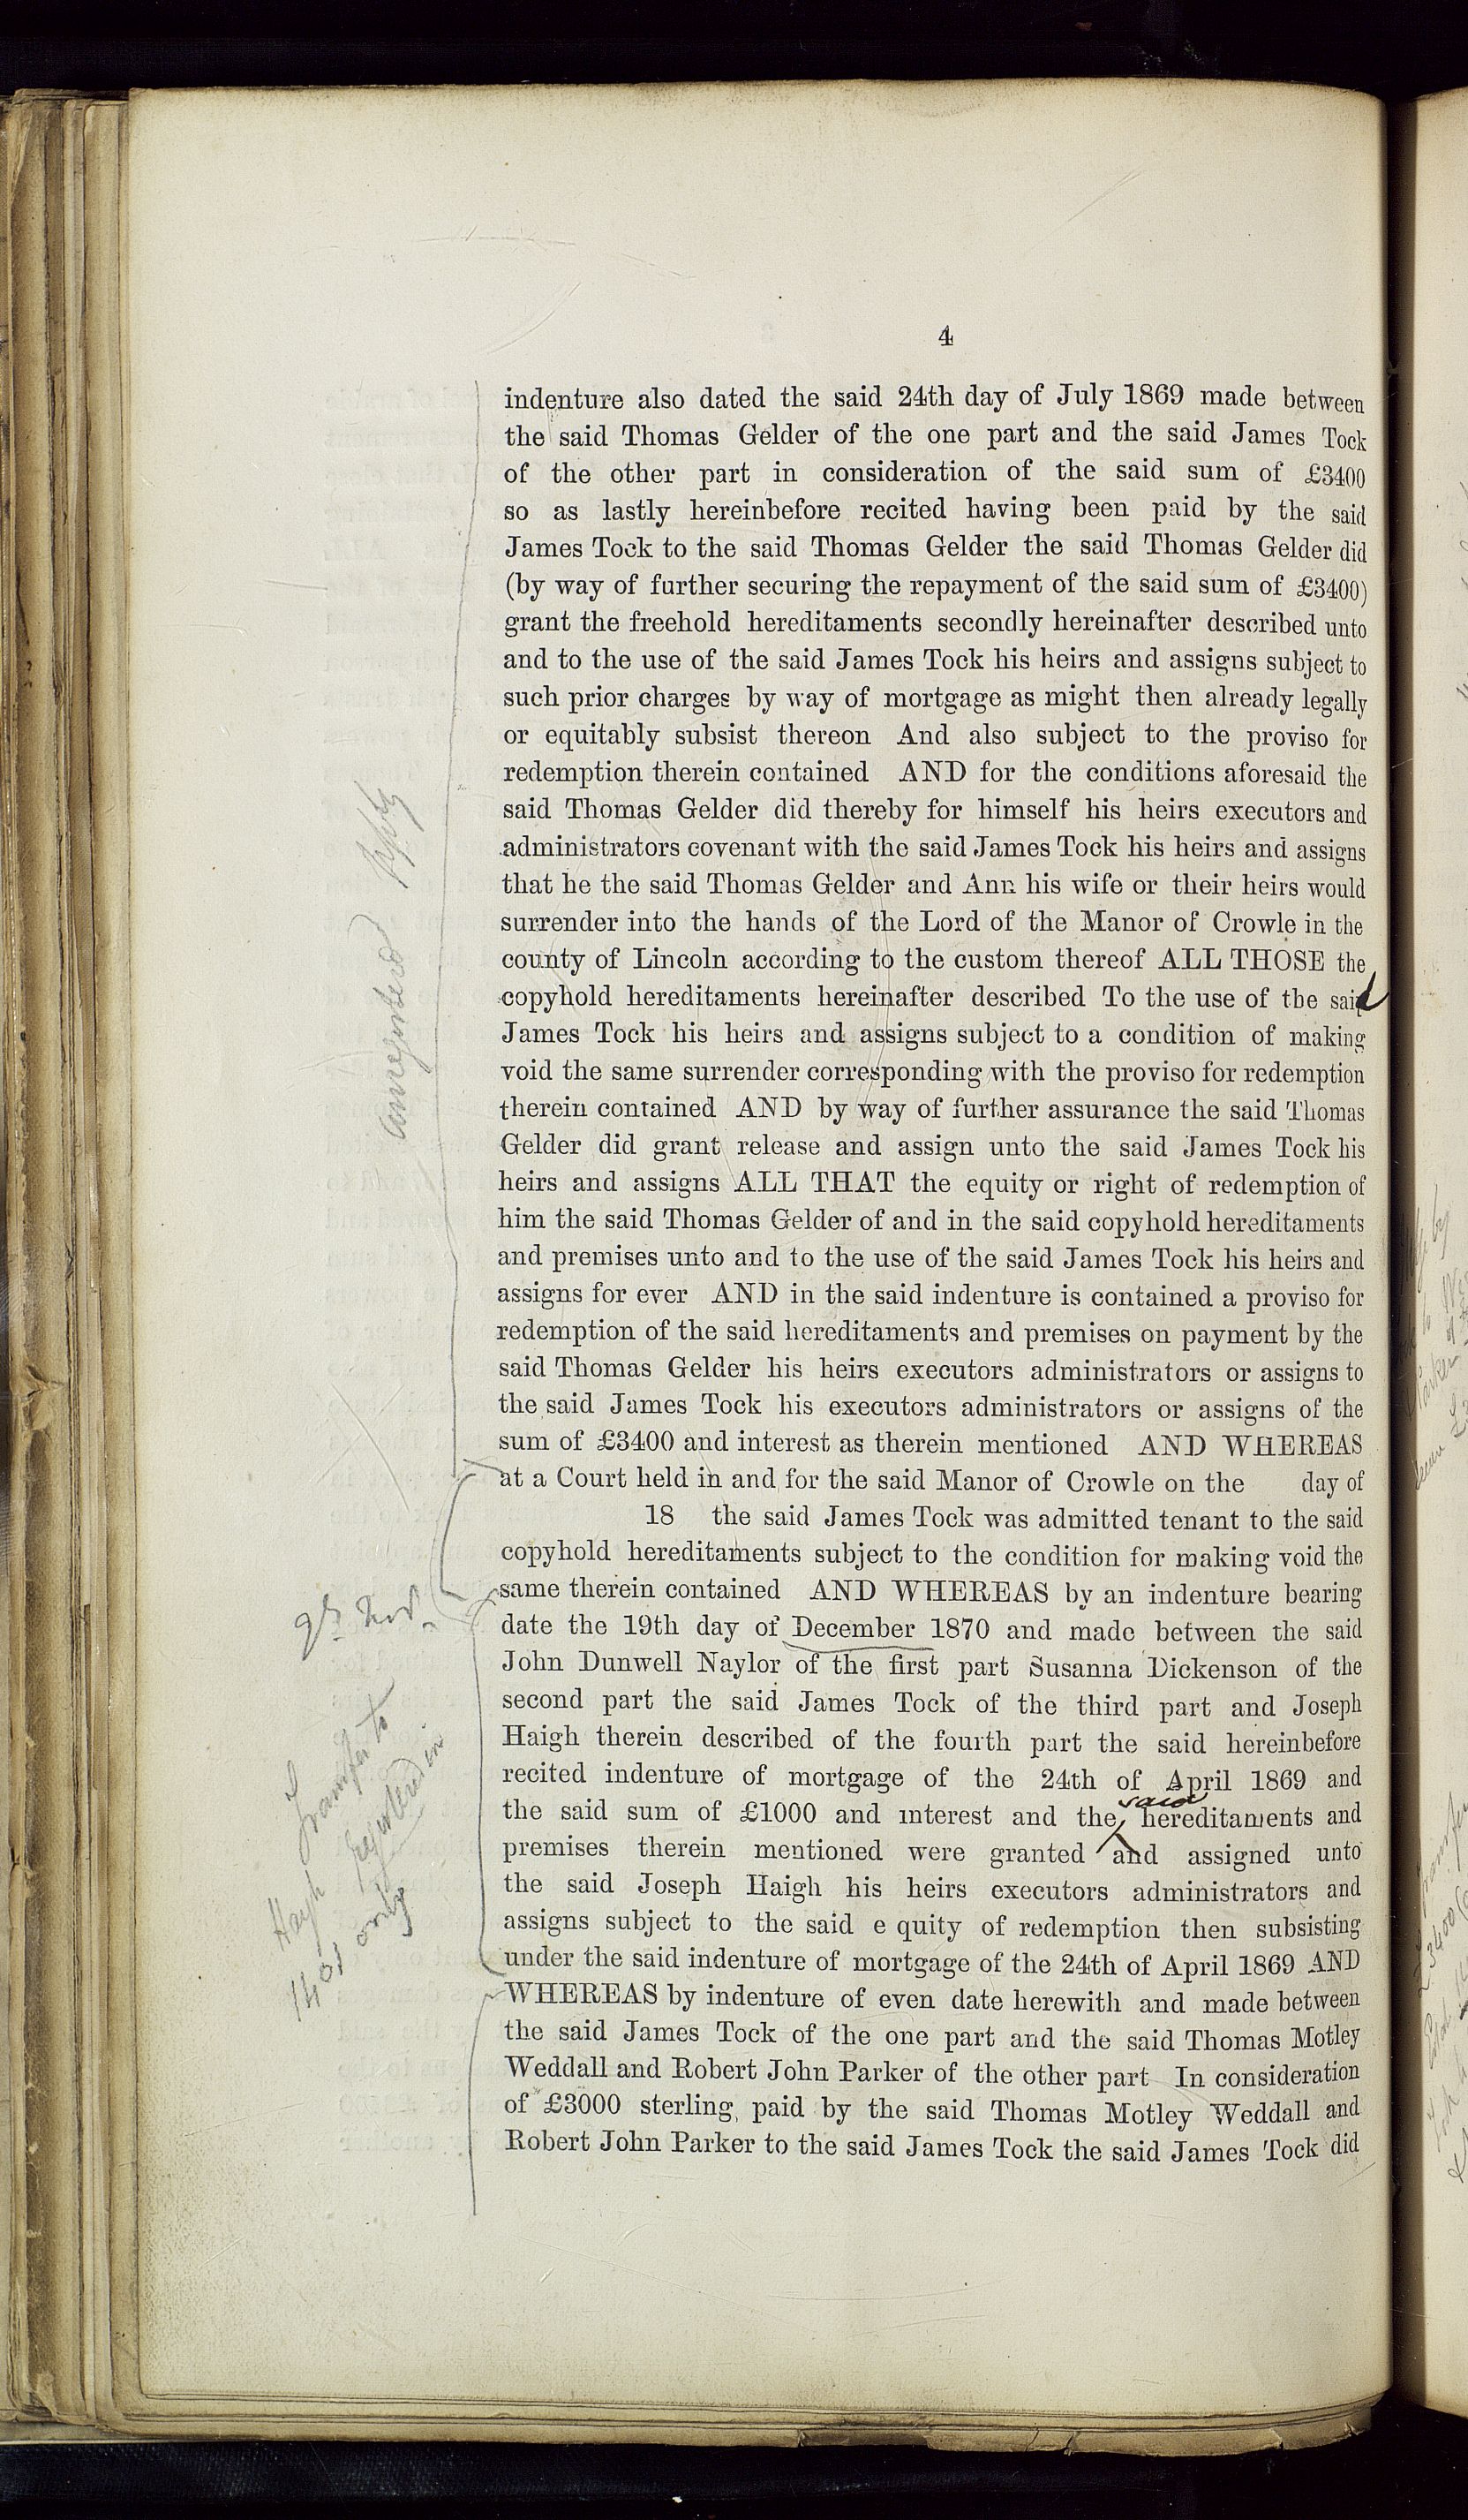 4
indenture also dated the said 24th day of July 1869 made between
the said Thomas Gelder of the one part and the said James Tock
of the other part in consideration of the said sum of £3400
so as lastly hereinbefore recited having been paid by the said
James Tock to the said Thomas Gelder the said Thomas Gelder did
(by way of further securing the repayment of the said sum of £3400)
grant the freehold hereditaments secondly hereinafter described unto
and to the use of the said James Tock his heirs and assigns subject to
such prior charges by way of mortgage as might then already legally
or equitably subsist thereon And also subject to the proviso for
redemption therein contained AND for the conditions aforesaid the
said Thomas Gelder did thereby for himself his heirs executors and
administrators covenant with the said James Tock his heirs and assigns
that he the said Thomas Gelder and Ann his wife or their heirs would
surrender into the hands of the Lord of the Manor of Crowle in the
county of Lincoln according to the custom thereof ALL THOSE the
copyhold hereditaments hereinafter described To the use of the said
James Tock his heirs and assigns subject to a condition of making
void the same surrender corresponding with the proviso for redemption
therein contained AND by way of further assurance the said Thomas
Gelder did grant release and assign unto the said James Tock his
heirs and assigns ALL THAT the equity or right of redemption of
him the said Thomas Gelder of and in the said copyhold hereditaments
and premises unto and to the use of the said James Tock his heirs and
assigns for ever AND in the said indenture is contained a proviso for
redemption of the said hereditaments and premises on payment by the
said Thomas Gelder his heirs executors administrators or assigns to
the said James Tock his executors administrators or assigns of the
sum of £3400 and interest as therein mentioned AND WHEREAS
at a Court held in and for the said Manor of Crowle on the day of
18 the said James Tock was admitted tenant to the said
copyhold hereditaments subject to the condition for making void the
same therein contained AND WHEREAS by an indenture bearing
date the 19th day of December 1870 and made between the said
John Dunwell Naylor of the first part Susanna Dickenson of the
second part the said James Tock of the third part and Joseph
Haigh therein described of the fourth part the said hereinbefore
recited indenture of mortgage of the 24th of April 1869 and
the said sum of £1000 and interest and the said hereditaments and
premises therein mentioned were granted and assigned unto
the said Joseph Haigh his heirs executors administrators and
assigns subject to the said e quity of redemption then subsisting
under the said indenture of mortgage of the 24th of April 1869 AND
WHEREAS by indenture of even date herewith and made between
the said James Tock of the one part and the said Thomas Motley
Weddall and Robert John Parker of the other part In consideration
of £3000 sterling paid by the said Thomas Motley Weddall and
Robert John Parker to the said James Tock the said James Tock did
Transfer to
Haigh registered in
only